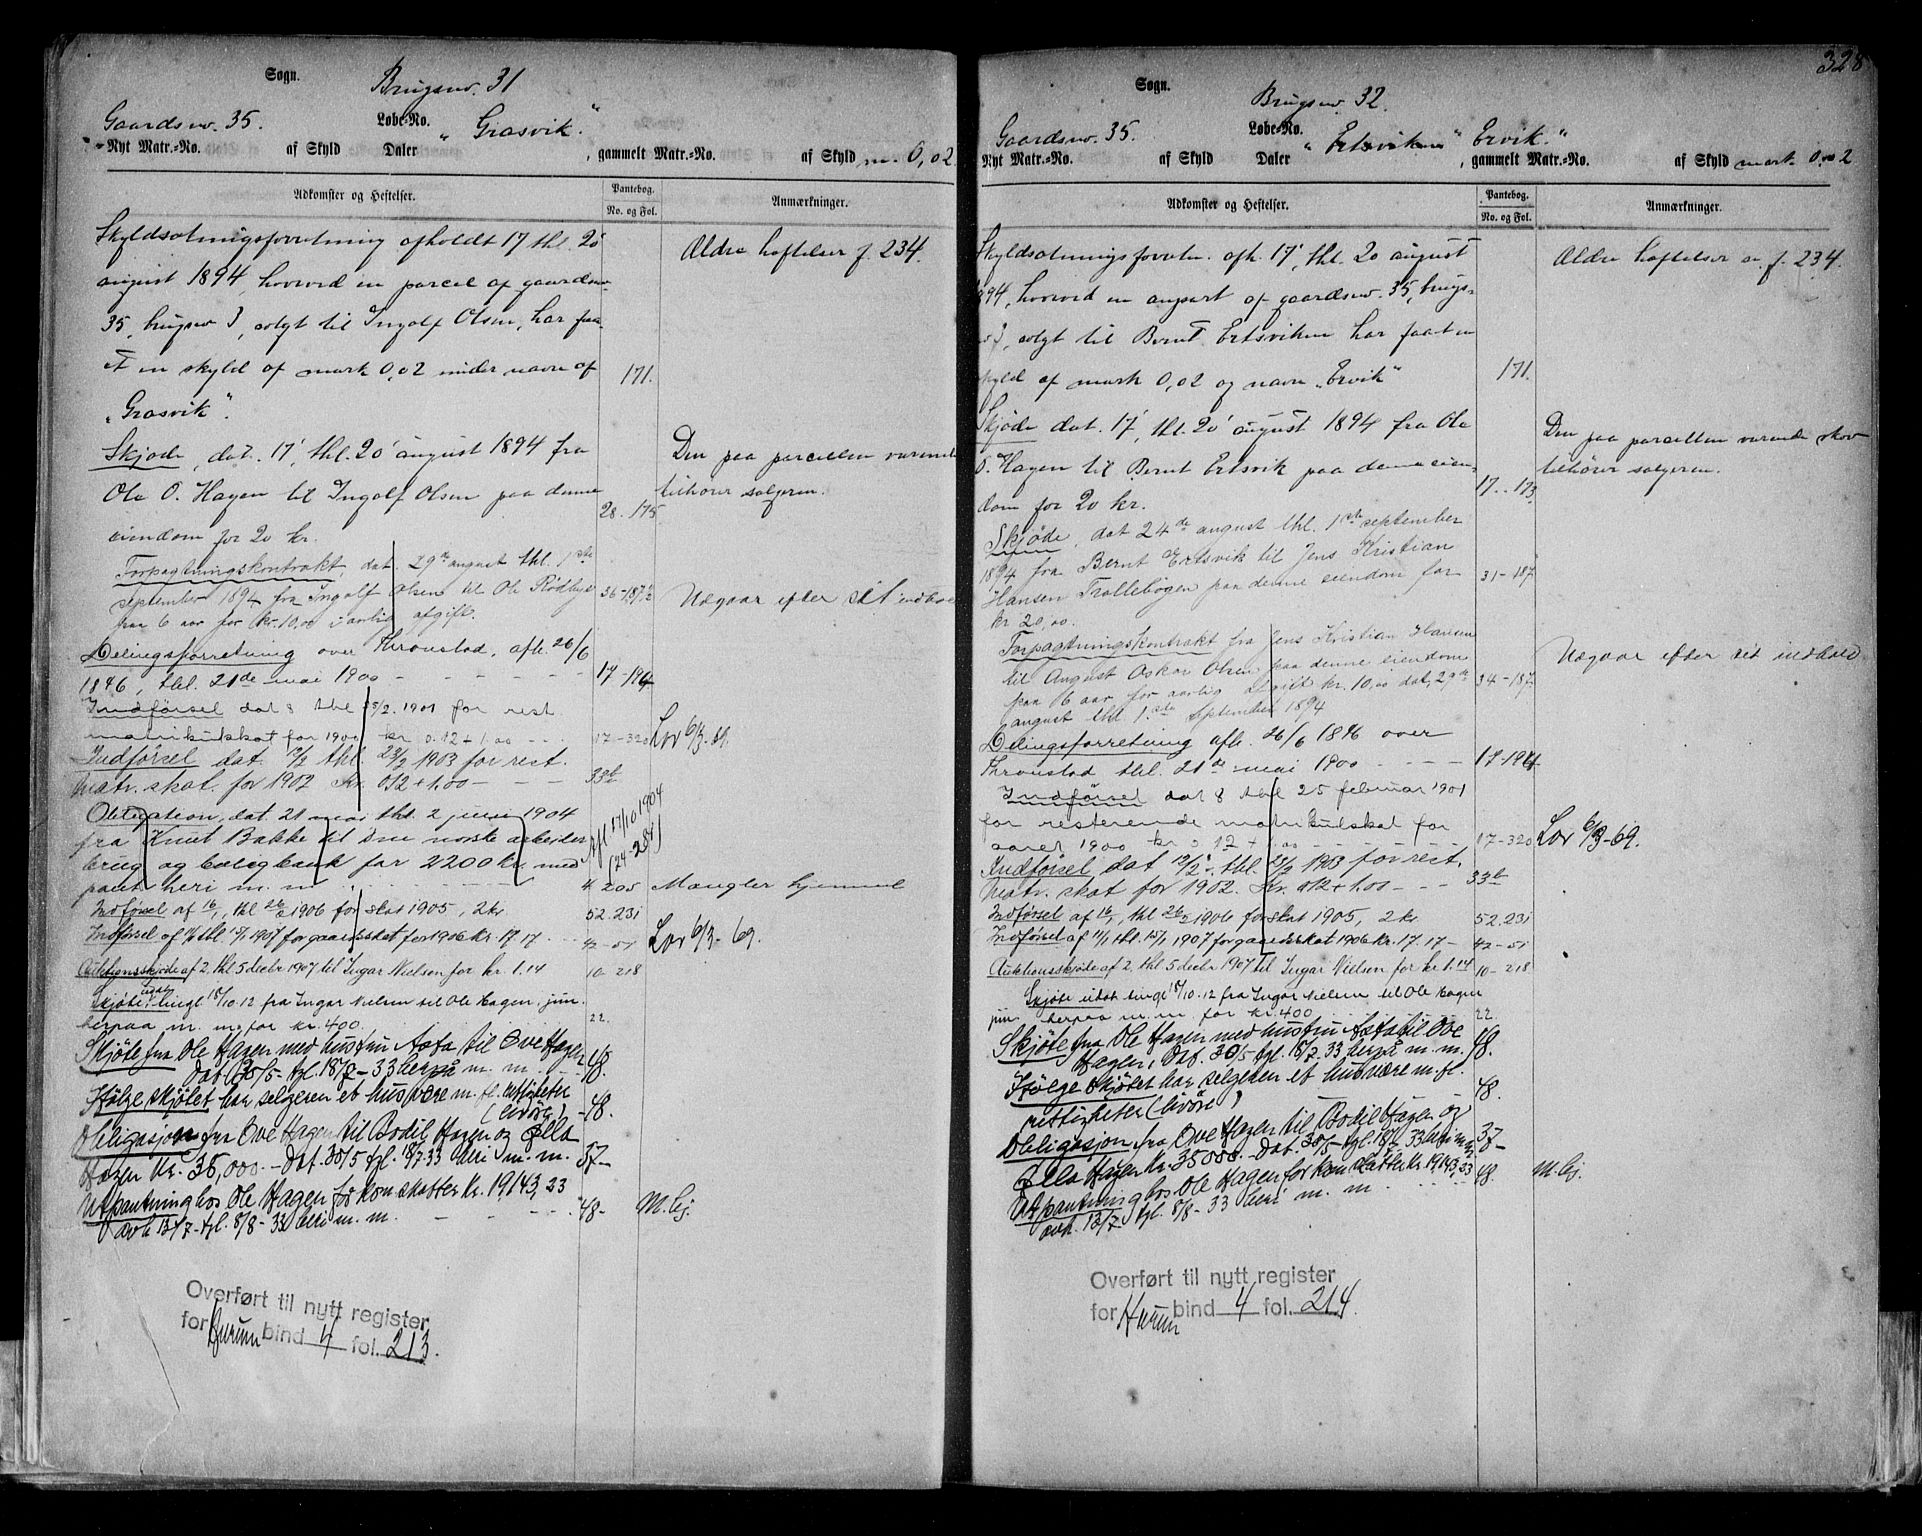 Sogn.
Brugsno. 31
Gaardsno. 35.
Løbe-No.
„Grasvik“
Nyt Matr.-No. af Skyld Daler , gammelt Matr.-No. af Skyld m. 0,02
Adkomster og Heftelser.
Pantebog.
No. og Fol.
Anmærkninger.
Skyldsætningsforretning afholdt 17 thl. 20
august 1894, hvorved en parcel af gaardsno.
35, brugsno 3, solgt til Ingolf Olsen, har faa-
et en skyld af mark 0,02 under navn af 171.
„Grasvik“.
Ældre heftelser f. 234.
Skjøde, dat. 17, thl. 20 august 1894 fra
Ole O. Hagen til Ingolf Olsen paa denne
eiendom for 20 kr. 28. 175
Den paa parcellen værende
tilhører sælgeren.
Forpagtningskontrakt, dat 29de august thl. 1ste
september 1894 fra Ingolf Olsen til Ole Rödbye 36-187
paa 6 aar for kr. 10,00 i aarlig afgift.
Udgaar efter sit indhold
Delingsforretning over Thronstad, afh. 26/6
1896, thl. 21de mai 1900 - - - - 17-194
Indførsel dat 8 thl 25/2. 1901 for rest
matrikulskat for 1900 kr 0.12 + 1.00 - - 17-320 Lov 6/3-69.
Indførsel dat. 12/2 thl. 23/2 1903 for rest.
matr. skat. for 1902 Kr. 012+1.00 - - 33b
Obligation, dat. 21 mai thl. 2 juni 1904
fra Knut Bakke til Den norske arbeider
brug og boligbank for 2200 kr. med
pant heri m. m. 4 205 Mangler hjemmel
Afl 17/10 1904
(24-281)
Indførsel af 16/1, thl 26/2 1906 for skat 1905, 2 kr. 52.231
Indførsel af 11/1 thl. 15/1 1907 for gaardsskat for 1906 kr. 17.17 42-51 Lov 6/3-69.
Auktionsskjøde af 2, thl 5 decbr 1907 til Ingar Nielsen for kr. 1.14 10-218
Skjøte udst tingl 18/10.12 fra Ingar Nielsen til Ole Hagen, jun.
herpaa m. m. for kr. 400. 22.
Skjøte fra Ole Hagen med hustru Aasta til Ove Hagen
dat 30/5 - tgl. 18/7-33 herpå m. m. 48.
Ifølge skjøtet har selgeren et husvære m. fl. rettigheter
(livøre) - 48.
Obligasjon fra Ove Hagen til Bodil Hagen og Ella
Hagen kr. 35,000.- dat. 30/5 tgl. 18/7-33 heri m. m. 37-
Utpantning hos Ole Hagen for kom.skatter kr. 19,143,23
avh 13/7 - tgl. 8/8-33 heri m. m. 48- M. hj.
Overført til nytt register
for Hurum bind 4 fol. 213.
328
Sogn.
Brugsno 32
Gaardsno. 35.
Løbe-No.
„Ertsviken“ „Ervik“
Nyt Matr.-No. af Skyld Daler , gammelt Matr.-No. af Skyld mark 0,02
Adkomster og Heftelser.
Pantebog.
No. og Fol.
Anmærkninger.
Skyldsætningsforretn. afh. 17, thl. 20 august
1894, hvorved en anpart af gaardsno. 35, brugs-
no 3, solgt til Bernt Ertsviken har faaet en
skyld af mark 0,02 og navn „Ervik“ 171.
Ældre heftelser f. 234.
Skjøde dat. 17, thl. 20 august 1894 fra Ole
O. Hagen til Bernt Ertsvik paa denne eien-
dom for 20 kr. 17..173
Den paa parcellen værende skov
tilhører sælgeren.
Skjøde, dat 24de august thl. 1ste september
1894 fra Bernt Ertsvik til Jens Kristian
Hansen Trollebøgen paa denne eiendom for 31-187
kr 20,00.
Forpagtningskontrakt fra Jens Kristian Hansen
til August Oskar Olsen paa denne eiendom
paa 6 aar for aarlig afgift kr. 10,00 dat, 29de 34-187
august thl. 1ste september 1894
Udgaar efter sit indhold
Delingsforretning afh. 26/6 1896 over
Thronstad thl. 21de mai 1900 - - - 17-194
Indførsel dat 8 thl 25 februar 1901
for resterende matrikulskat for
aaret 1900 kr 0 12 + 1.00 - - 17-320 Lov 6/3-69.
Indførsel dat 12/2 thl. 23/2 1903 for rest.
Matr. skat for 1902. Kr. 012+1.00 - - - 33b
Indførsel af 16/1 thl 26/2 1906 for skat 1905, 2 kr. 52.231
Indførsel af 11/1 thl. 15/1 1907 for gaardsskat 1906 kr. 17.17 - 42-51
Auktionsskjøde af 2, thl 5 decbr 1907 til Ingar Nielsen for kr 1.14 10-218
Skjøte udst tingl 18/10.12 fra Ingar Nielsen til Ole Hagen
jun herpaa m. m. for kr. 400 22.
Skjøte fra Ole Hagen med hustru Aasta til Ove
Hagen, dat. 30/5 tgl. 18/7.33 herpå m. m. 48.
Ifølge skjøtet har selgeren et husvære m. fl.
rettigheter (livøre) 48.
Obligasjon fra Ove Hagen til Bodil Hagen og
Ella Hagen kr. 35000.- dat. 30/5 - tgl. 18/7-33 heri m m 37-
Utpantning hos Ole Hagen for kom skatter kr. 19,143,23 48. M. hj.
avh. 13/7 tgl. 8/8-33 heri m. m.
Overført til nytt register
for Hurum bind 4 fol. 214.